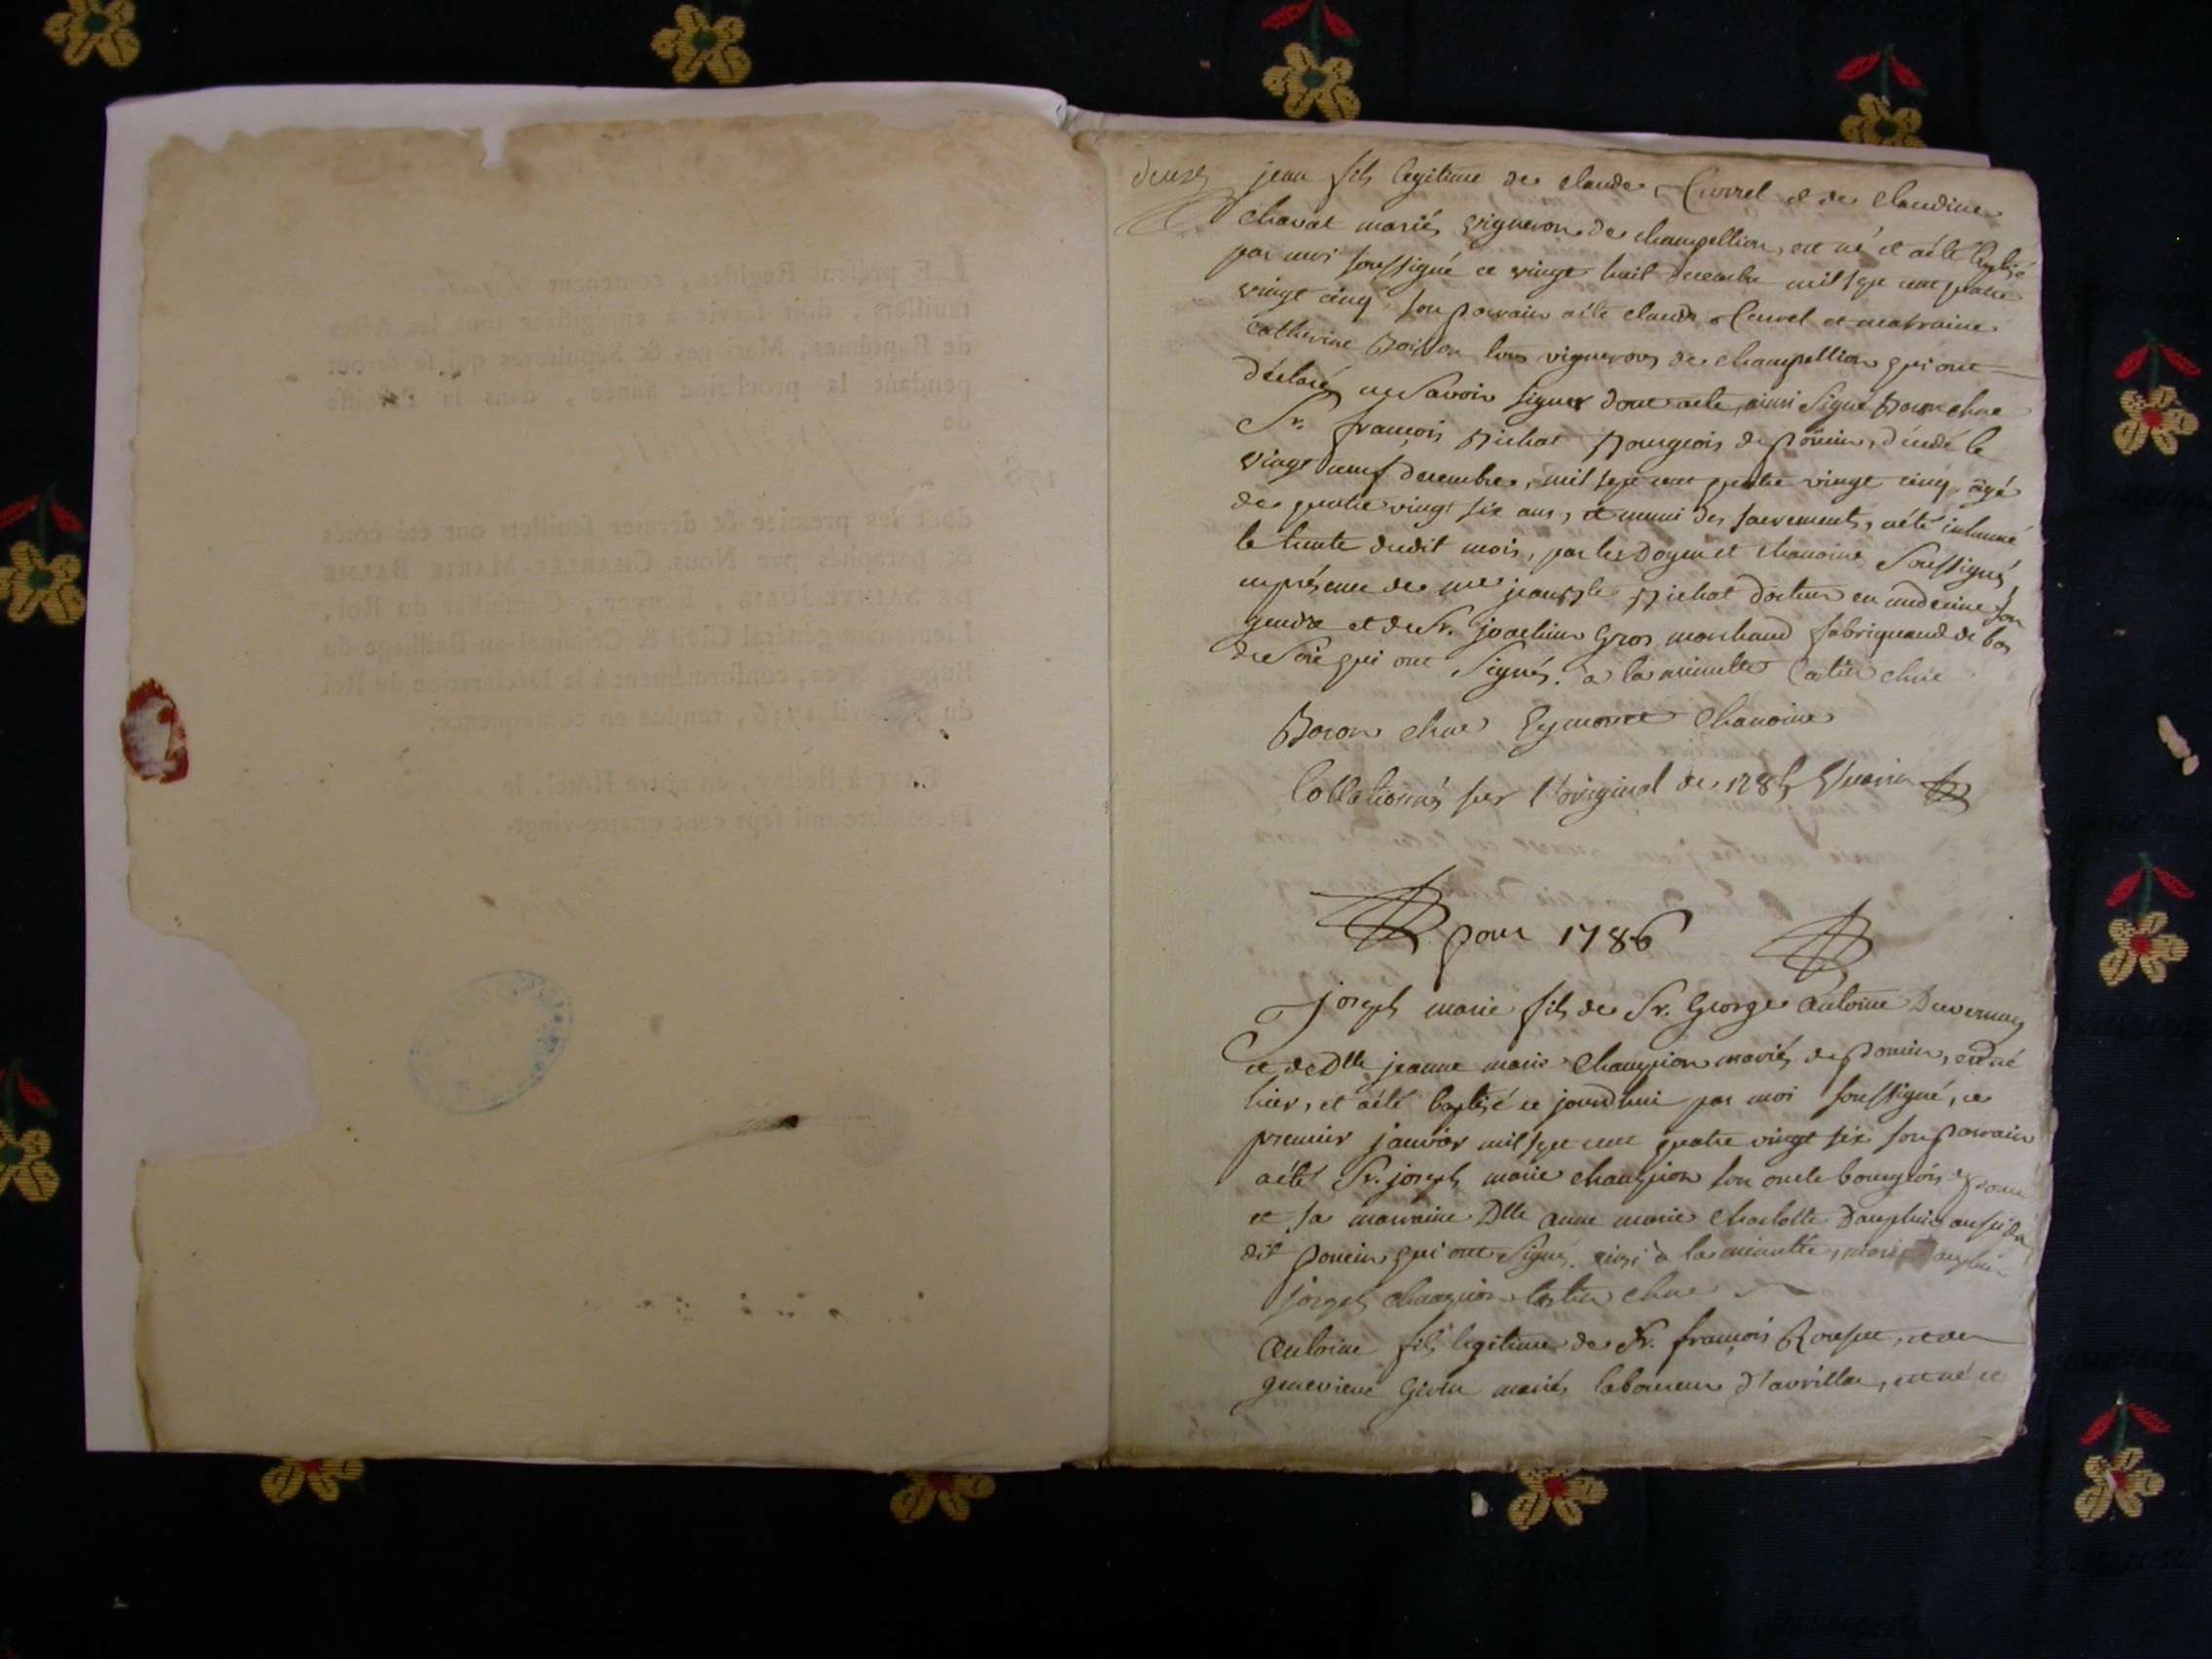 jean fils legitime de claude Cuvrel et de claudine
Chavat mariés vigneron de champollion, est né et aété baptisé
par moi soussigné ce vingt huit decembre mil sept cent quatre
vingt cinq, son parain aété claude Cuvrel et matraine
Catherine tous vignerons de champollion qui ont
déclaré ne savoir signer dont acte, ainsi signé chne
Sr. françois Michat Bourgeois de poncin, décédé le
vingt neuf decembre, mil sept cent quatre vingt cinq, âgé
de quatre vingt six ans, et muni des sacrements, aété inhumé
le trente dudit mois, par les Doyen et chanoines soussignés,
en présence de me jean Bte Michat docteur en medecine son
gendre et de Sr. joachim Gros marchand fabriquand de bas
de soie qui ont signés. a la minutte chne
chne Eymonne Chanoine
Collationnés sur l'original de 1785
pour 1786
joseph marie fils de Sr. George antoine Duvernay
et de Dlle jeanne marie Champion mariés de poncin, est né
hier, et aété baptisé ce jourdhui par moi soussigné, ce
premier janvier mil sept cent quatre vingt six son parain
aété Sr. joseph marie champion son oncle bourgeois
et sa maraine Dlle anne marie charlotte Dauphin aussi du
dit poncin qui ont signés. ainsi à la minutte, marie Dauphin
joseph champion chne
Antoine fils legitime de Sr. françois et de
genevieve mariés laboureur d'avrillat, est né ce
LE présent Registre, contenant
feuillets, doit servir à enregistrer tout les Actes
de Baptêmes, Mariages & Sépultures qui se feront
pendant la prochaine année, dans la Paroisse
de
178
dont les premier & dernier feuillets ont été cotés
& paraphés par Nous CHARLES-MARIE BALME
DE SAINTE-JULIE, Ecuyer, Conseiller du Roi,
Lieutenant-général Civil & Criminel au Bailliage du
Bugey, conformément à la Déclaration du Roi
du 9 avril 1736, rendue en conséquence.
FAIT à Belley, en notre Hôtel, le
Décembre mil sept cent quatre-vingt-